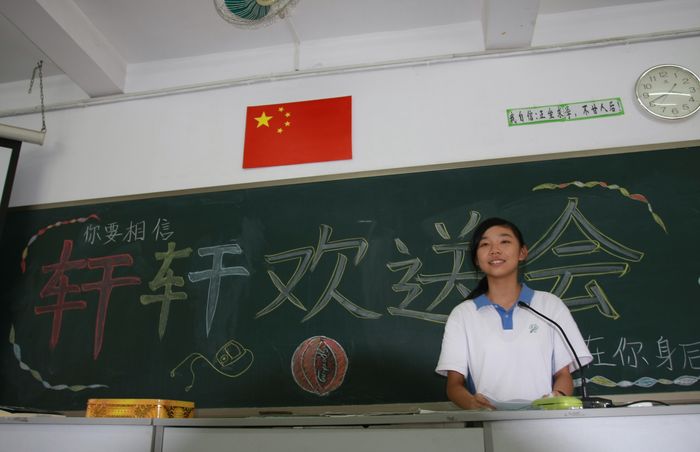 我自信:正坐求学,不甘人后!
你要相信
轩轩欢送会
在你身后